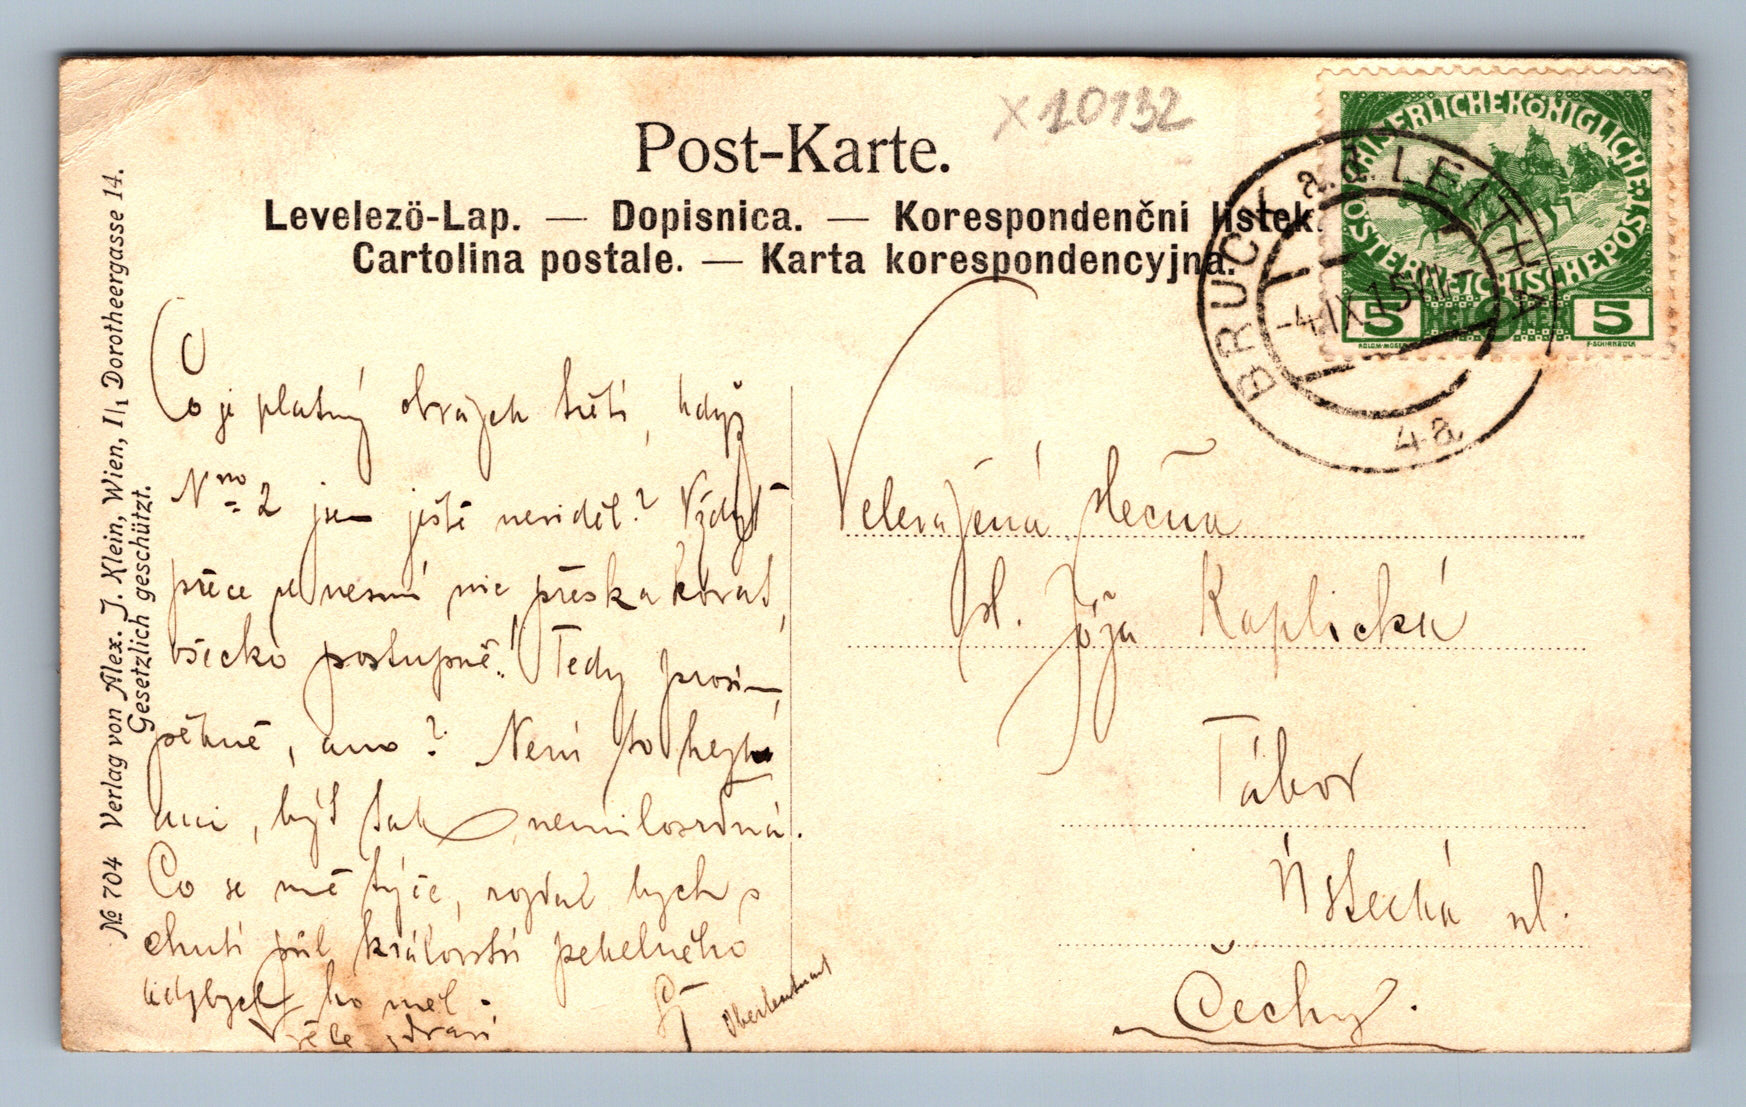 X10132
Post-Karte.
Levelezö-Lap. — Dopisnica. — Korespondenční lístek.
Cartolina postale. — Karta korespondencyjna.
KAISERLICHEKÖNIGLICHE
ÖSTERREICHISCHEPOST
5 HELLER 5
BRUCK a.d. LEITHA
-4.IX.15
4a
№ 704 Verlag von Alex. J. Klein, Wien, II/1 Dorotheergasse 14.
Gesetzlich geschützt.
Co je platný obrázek třetí, když
Nro 2 jsem ještě neviděl? Vždyť
přece se nesmí nic přeskakovat,
všecko postupně! Tedy prosím
pěkně, ano? Není to hezké
ani, být tak nemilosrdná.
Co se mě týče, rozdal bych s
chutí půl království pekelného
kdybych ho měl.
zdraví
Oberleutnant
Velevážená slečna
sl. Jóža Kaplická
Tábor
Ústecká ul.
Čechy.